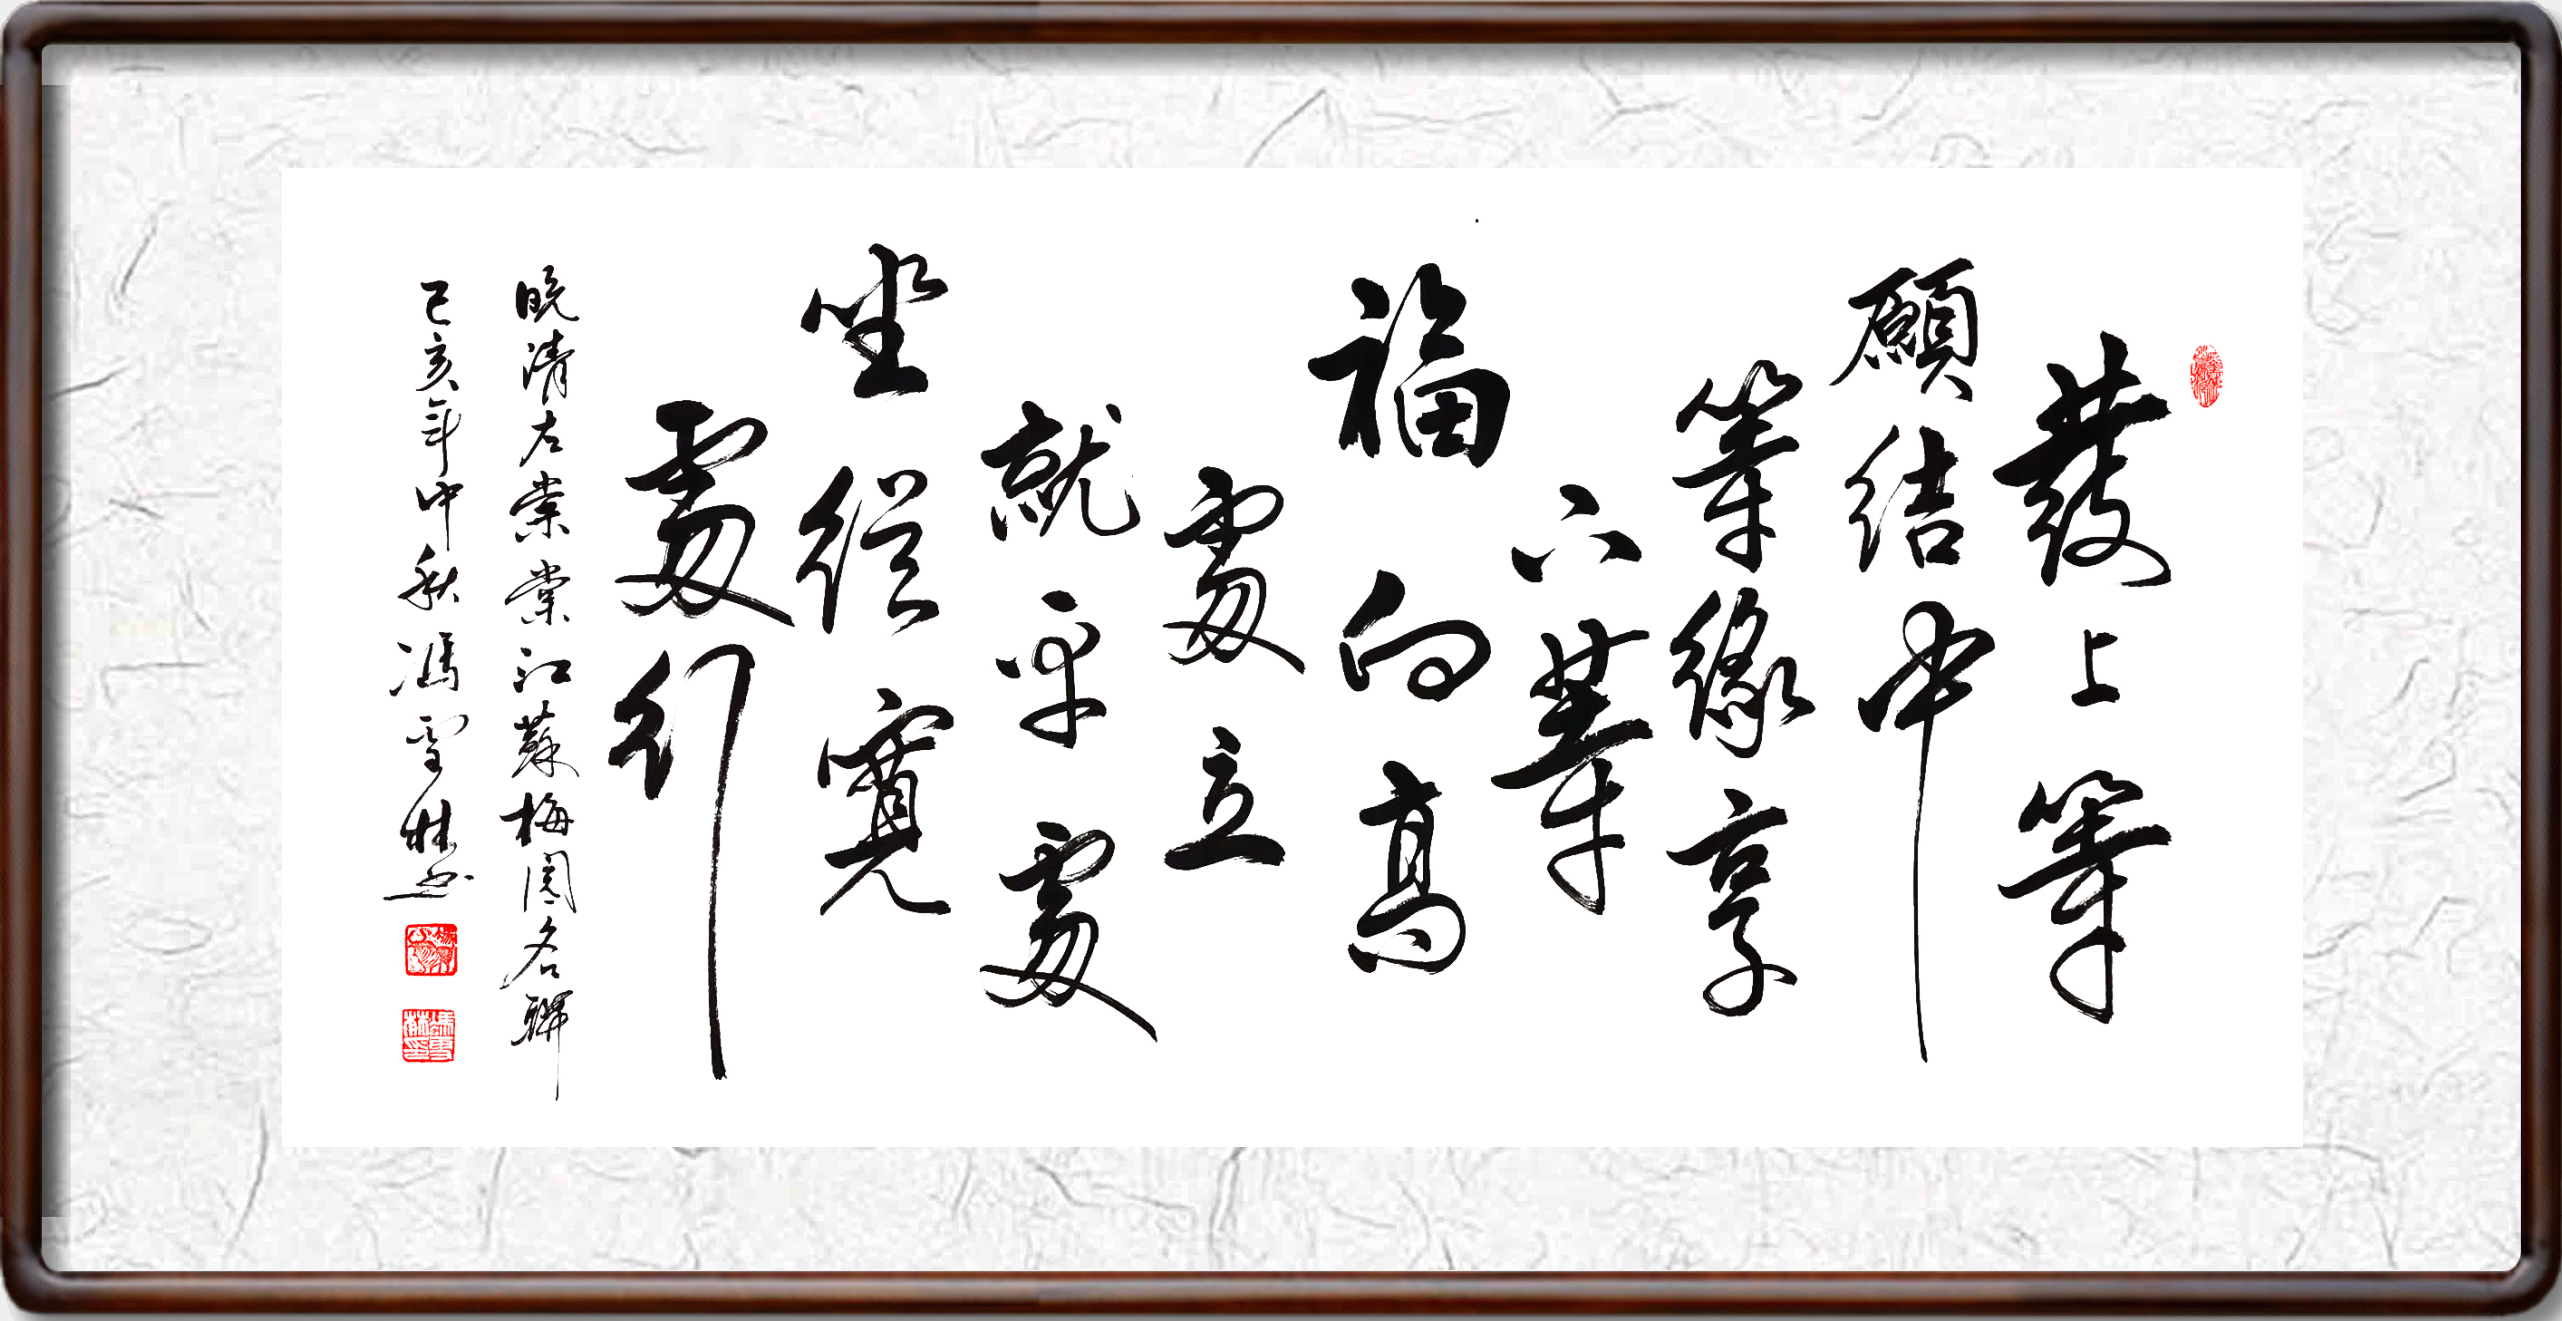 發上等
願結中
等緣享
下等
福向高
處立
就平處
坐從寬
處行
晚清左棠棠江蘇梅園名聯
己亥年中秋馮雪林書